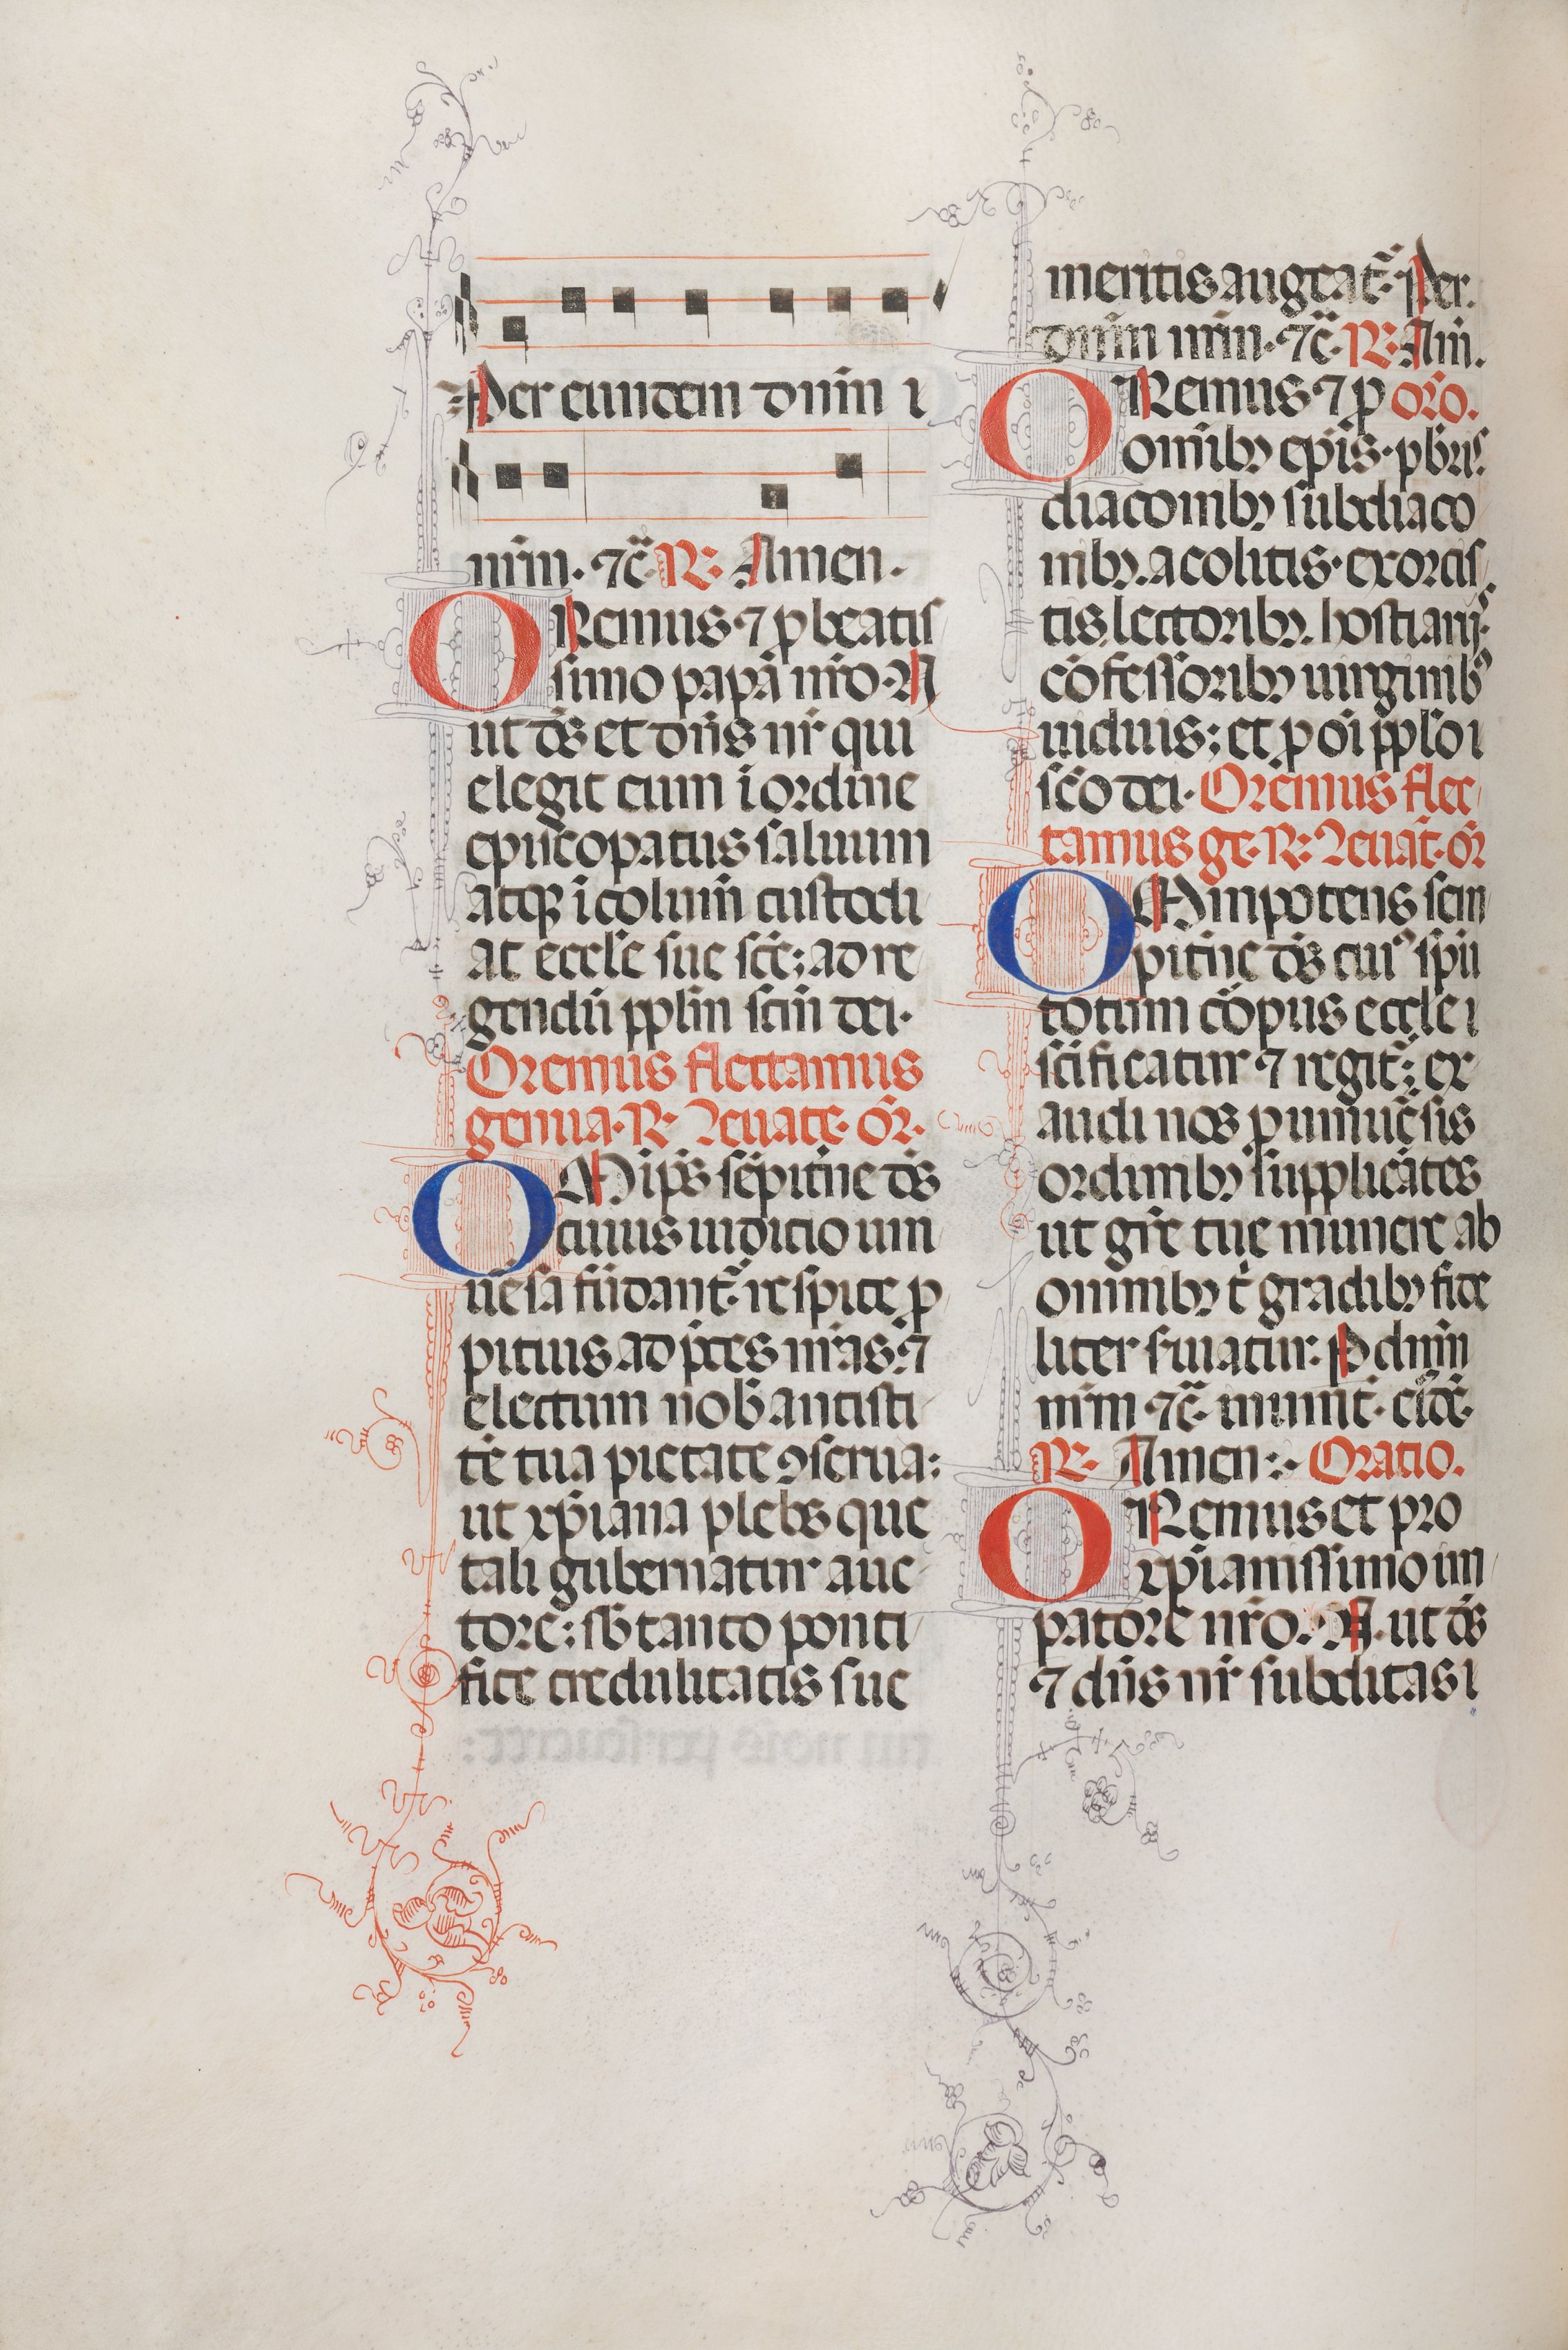 Per eundem dnm̄ i
nrm̄. ⁊c̄. R. Amen.
ORemus ⁊ p̱ beatis
simo papa nr̄o. N
ut ds̄ et dn̄s nr̄ qui
elegit eum i ordine
episcopatus saluum
atqꝫ icolum̄ custodi
at eccle sue scē; ad re
gendū pplm̄ scm̄ dei.
Oremus flectamus
genua. R. Leuate. or̄.
OMips̄ sēpit̄ne ds̄
cuius iudicio uni
uēsa fūdant̄. respice p̱
pitius ad p̄ces nr̄as: ⁊
electum nob̄ antisti
tē tua pietate ꝯserua:
ut xp̄iana plebs que
tali gubernatur auc
tore: sb̄ tanto ponti
fice credulitatis sue
meritis augeat̄. Per.
dnm̄ nrm̄. ⁊c̄. R. Am̄.
ORemus ⁊ p̱ oro.
omībꝫ ep̄is. pb̄ris
diaconibꝫ subdiaco
nibꝫ. acolitis. exorcis
tis, lectoribꝫ. hostiarijs
cōfessoribꝫ uirginibꝰ
uiduis; et p̱ oi pplo i
scō dei. Oremus flec
tamus ge. R. Leuat. or̄
OMnipotens sem
pit̄ne ds̄ cuiꝰ spū
totum cōpus eccle i
scīficatur ⁊ regit̄: ex
audi nos p̱ uniuēsis
ordinibꝫ supplicātes
ut gr̄e tue munere ab
omnibꝫ t̄ gradibꝫ fide
liter s̄uiatur. P dnm̄
nrm̄ ⁊c̄. inunit̄. eidē.
R. Amen:. Oratio.
ORemus et pro
xp̄ianissimo im
patore nr̄o. N. ut ds̄
⁊ dn̄s nr̄ subditas i